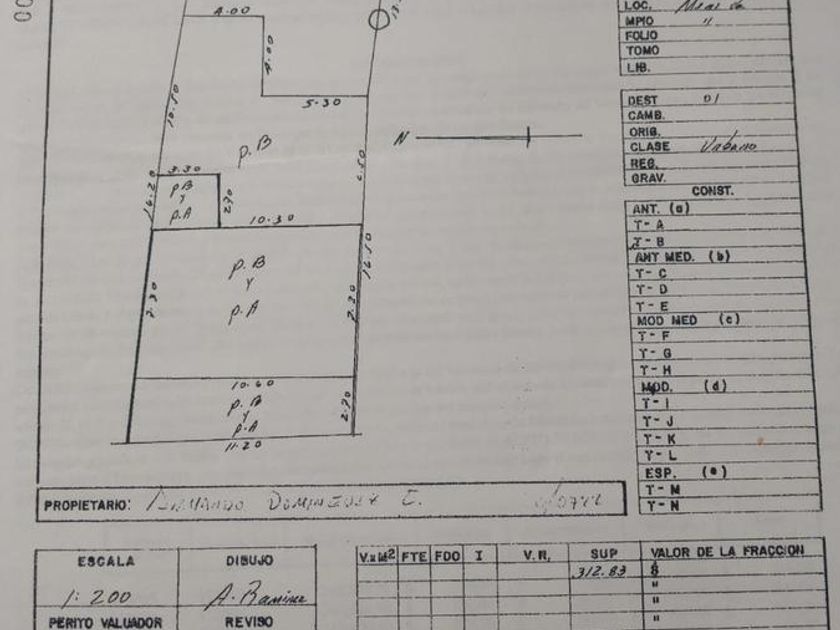 00
4.00
4.00
5.30
10.50
P.B
N
6.50
3.30
P.B
Y
P.A
2.90
16.20
10.30
16.10
P.B
Y
P.A
7.30
7.30
10.60
P.B
Y
P.A
2.70
11.20
LOC.
MPIO "
FOLIO
TOMO
LIB.
DEST 01
CAMB.
ORIG.
CLASE Urbano
REG.
GRAV.
CONST.
ANT. (a)
T- A
T- B
ANT MED. (b)
T- C
T- D
T- E
MOD MED (c)
T- F
T- G
T- H
MOD. (d)
T- I
T- J
T- K
T- L
ESP. (e)
T- M
T- N
PROPIETARIO: ARMANDO DOMINGUEZ C.
ESCALA DIBUJO
1:200 A. Ramirez
PERITO VALUADOR REVISO
V.xM2 FTE FDO I V.R. SUP VALOR DE LA FRACCION
312.83 $
"
"
"